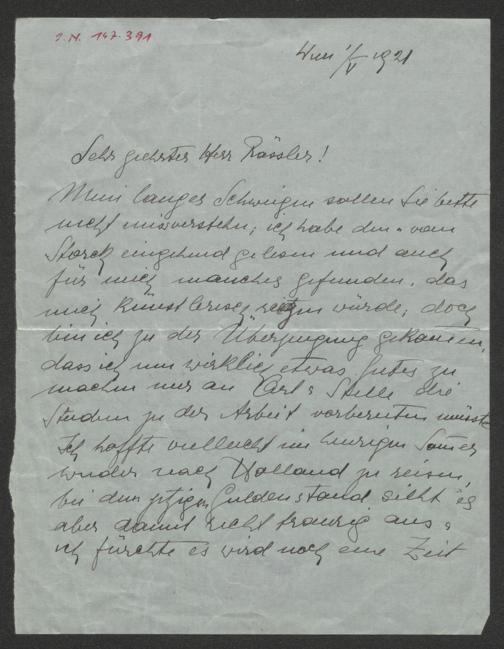 J.N. 147.391
Wien 1/V 1921
Sehr geehrter Herr Rössler!
Mein langes Schweigen sollen Sie bitte
nicht missverstehn; ich habe den von
Storck eingehend gelesen und auch
für mich manches gefunden, das
mich künstlerisch reizen würde; doch
bin ich zu der Überzeugung gekommen,
dass ich um wirklich etwas Gutes zu
machen nur an Stelle die
Studien zu der Arbeit vorbereiten müsste
Ich hoffte vielleicht im heurigen Sommer
wieder nach Holland zu reisen,
bei dem jetzigen Guldenstand sieht es
aber damit recht traurig aus,
ich fürchte es wird noch eine Zeit